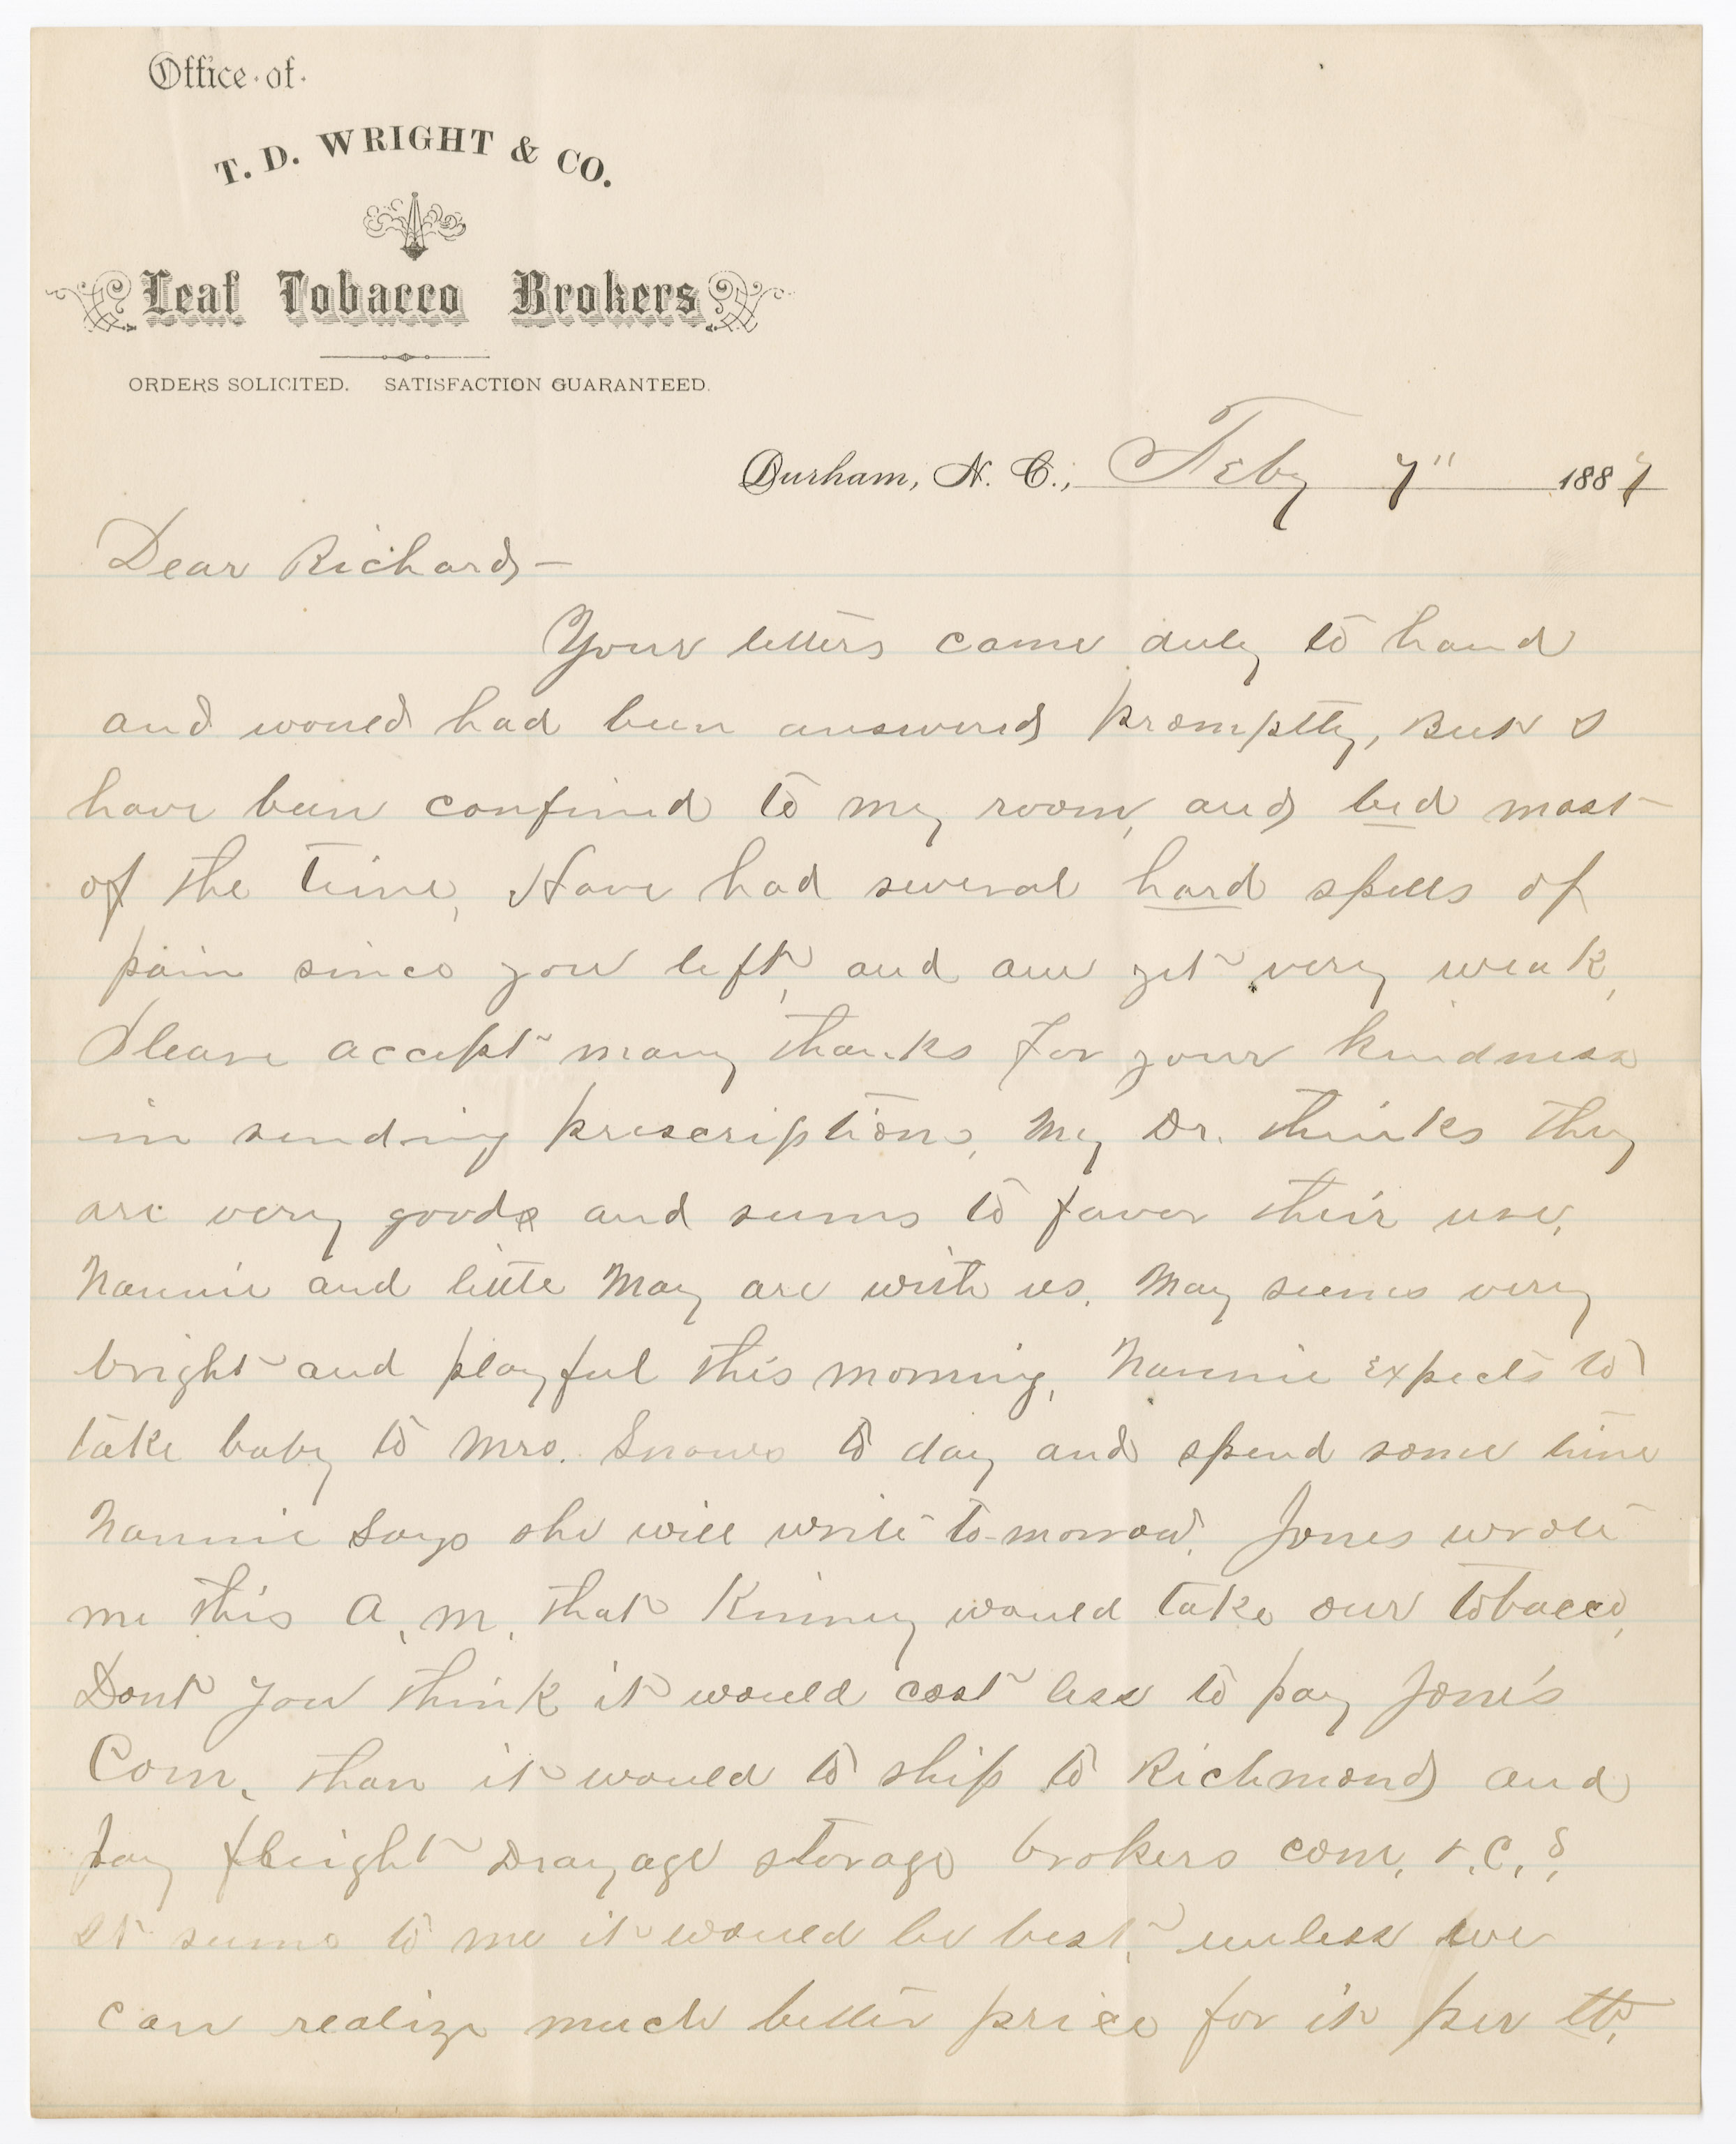 Office of
T. D. WRIGHT & CO.
Leaf Tobacco Brokers
ORDERS SOLICITED. SATISFACTION GUARANTEED.
Durham, N. C., Feby 7" 1887
Dear Richard,—
Your letters came duly to hand
and would had been answered promptly, But I
have been confined to my room, and bed most
of the time, Have had several hard spells of
pain since you left, and am yet very weak,
Please accept many thanks for your kindness
in sending prescriptions, My Dr. thinks they
are very good and seems to favor their use,
Nannie and little May are with us. May seems very
bright and playful this morning, Nannie Expects to
take baby to Mrs. Snows to day and spend some time
Nannie Says she will write to-morrow. Jones wrote
me this A. M. that Kinney would take our tobacco,
Dont you think it would cost less to pay Jone's
Com. than it would to ship to Richmond and
pay freight Drayage storage brokers com, &.C.?
It seems to me it would be best, unless we
can realize much better price for it per lb,